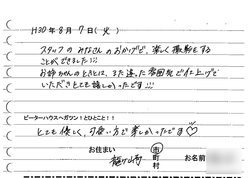 H30年 8月 7日(火)
スタッフのみなさんのおかげで、楽しく撮影をする
ことができました!!
お姉ちゃんのときとは、また違った雰囲気で仕上げて
いただきとても嬉しかったです!!!
ピーターハウスへガツン!とひとこと!!
とても優しく、可愛い方で楽しかったです♡
お住まい
龍ヶ崎
市
町
村
お名前